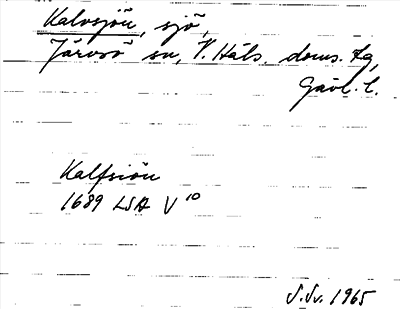 Kalvsjön, sjö,
Järvsö sn, V. Häls. doms. tg,
Gävl. l.
Kalfsiön
1689 LSA V 10
S.Sv. 1965